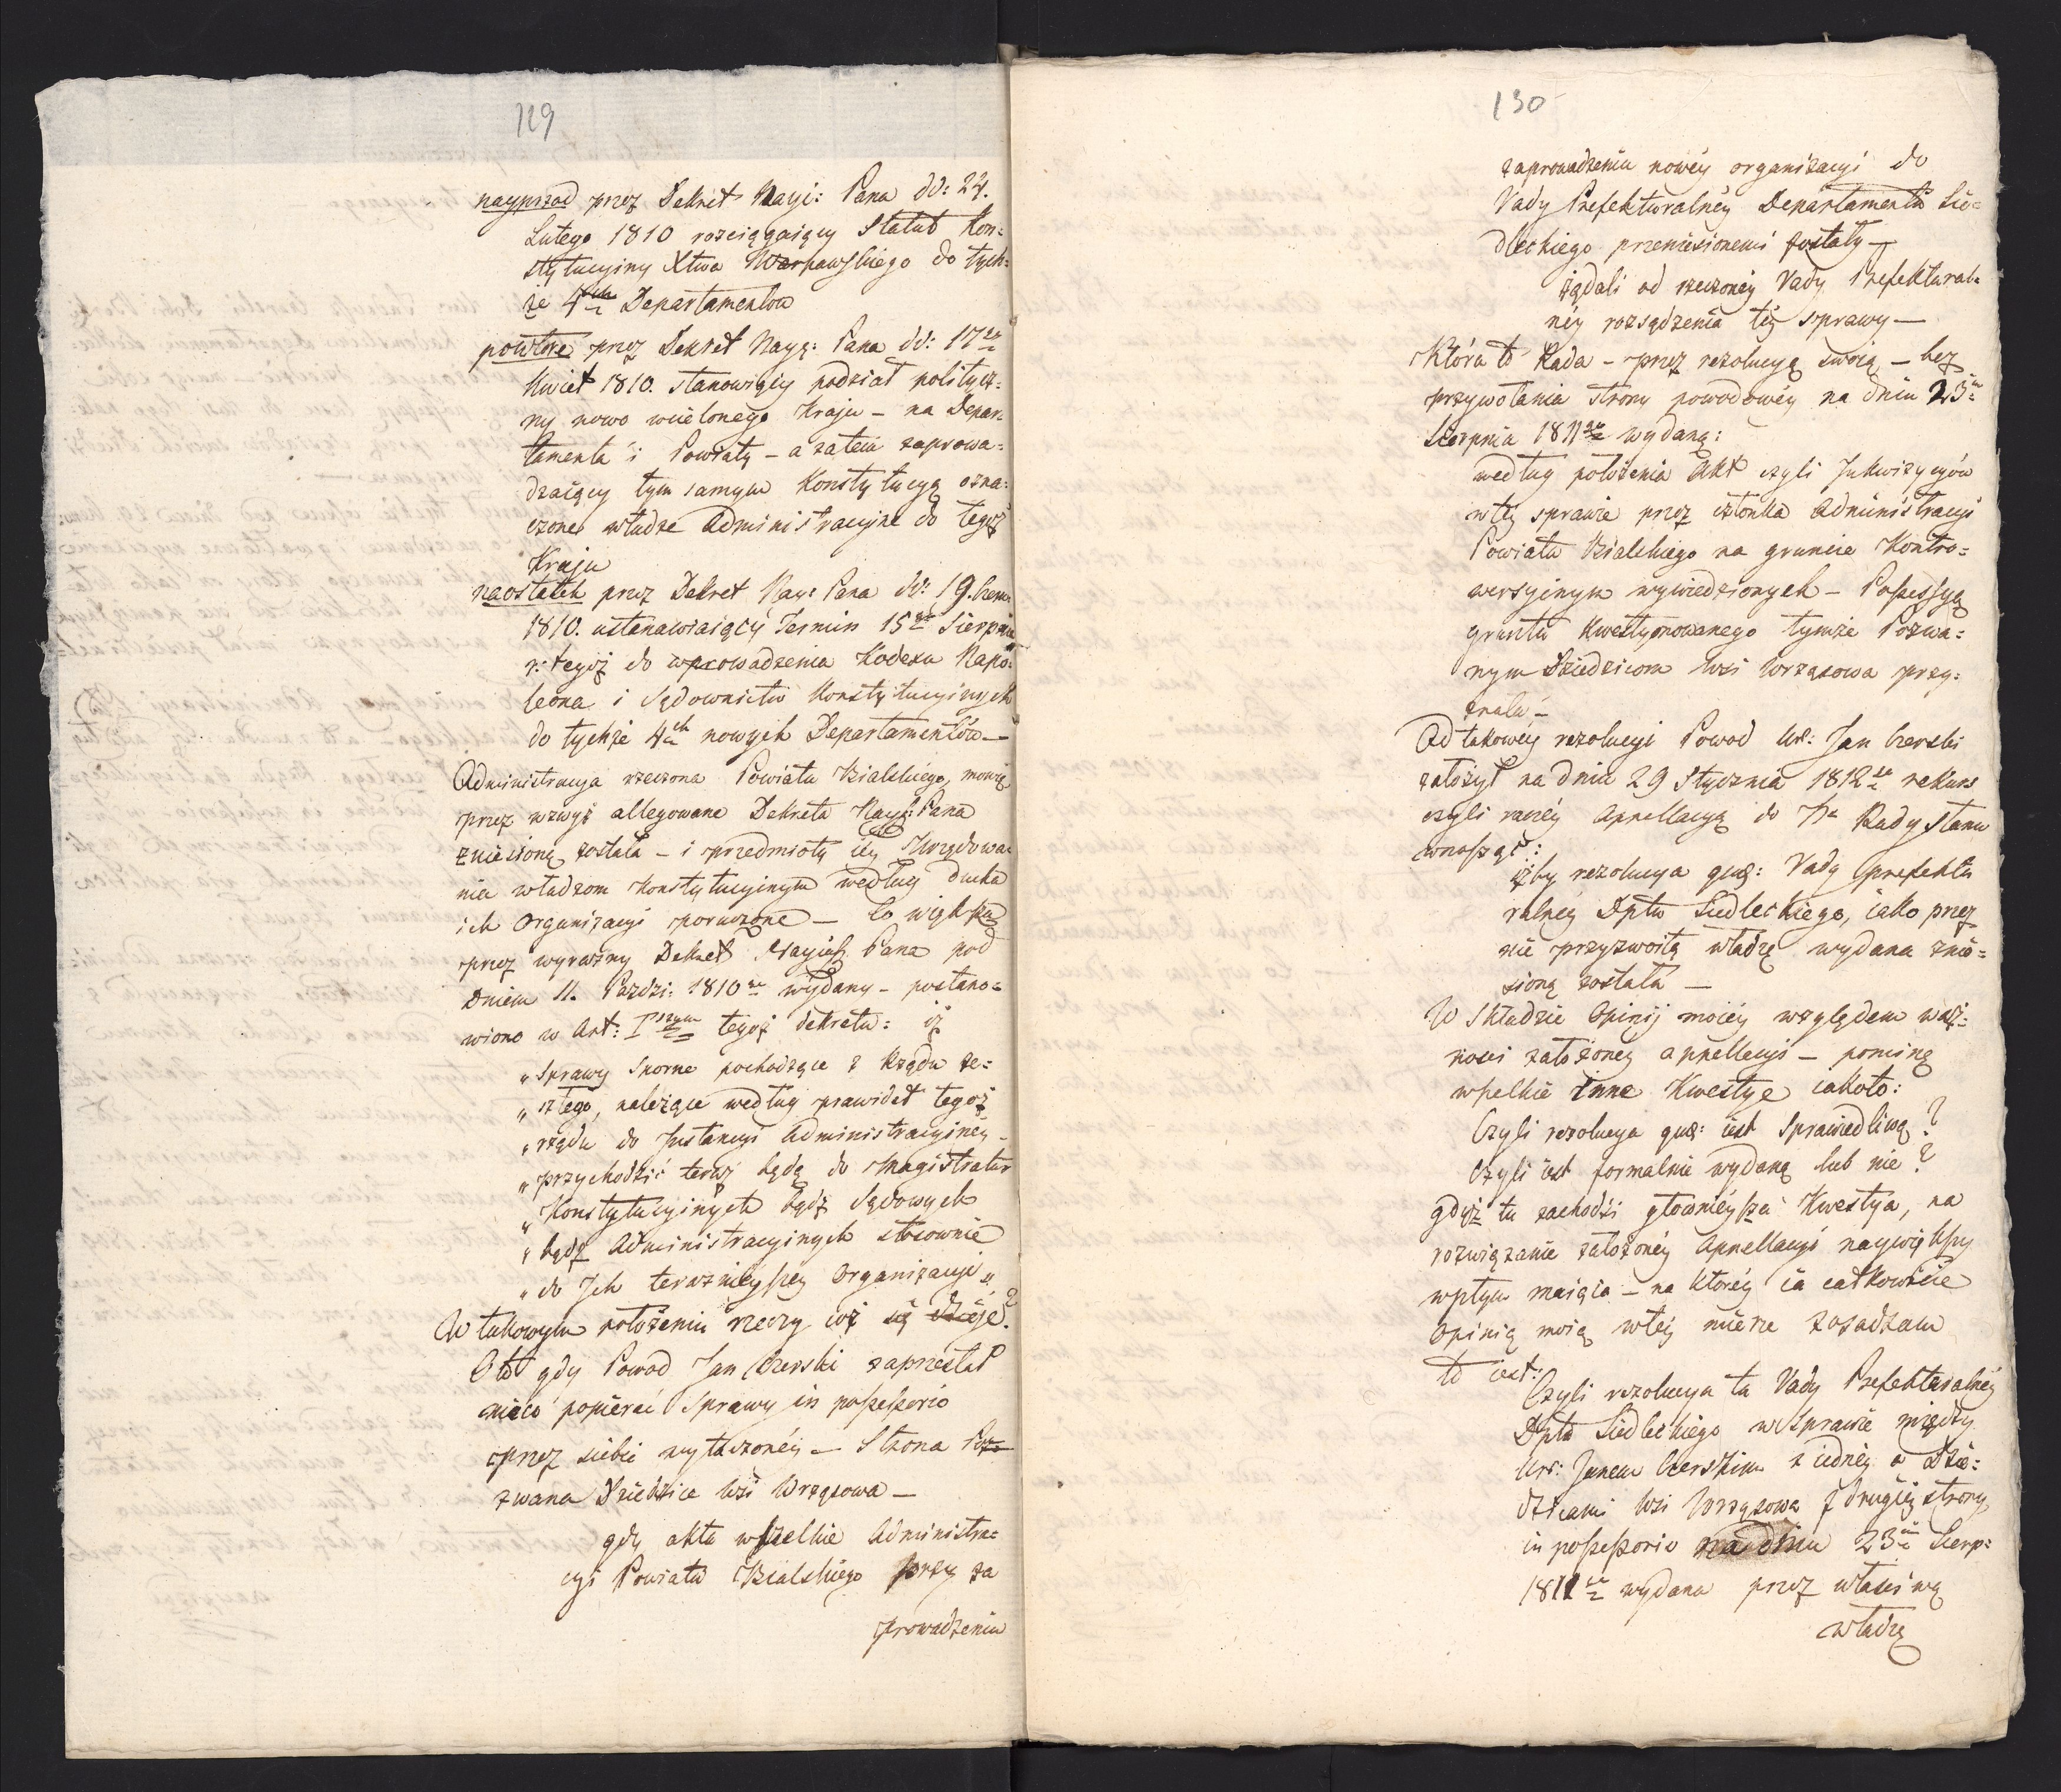 129
nayprzod przez Dekret Nayi: Pana dd: 24.
Lutego 1810 rozciągaiący Statut Kon=
stytucyiny Xtwa Warszawskiego do tych=
że 4ch Departamentow
powtore przez Dekret Nayj: Pana dd: 17go
Kwiet 1810. stanowiący podział politycz=
ny nowo wcielonego Kraju – na Depar=
tamenta i Powiaty – a zatem zaprowa=
dzaiący tym samym Konstytucyą ozna=
czone władze Administracyine do tegoż
Kraju
naostatek przez Dekret Nay: Pana dd: 19. Czerw:
1810. ustanawiaiący Termin 15go Sierpnia
r: tegoż do wprowadzenia Kodexu Napo=
leona i Sądownictw Konstytucyinych
do tychże 4ch nowych Departamentów –
Administracya rzeczona Powiatu Bialskiego, mowię
przez wzwyż allegowane Dekreta Nayj: Pana
zniesioną została – i przedmioty iey Urzędowa=
nia władzom Konstytucyinym według ducha
ich Organizacyi poruczone – Co większa
przez wyraźny Dekret Nayiaś: Pana pod
Dniem 11. Pazdzi: 1810 ro wydany – postano=
wiono w Art: Iszym tegoż dekretu: iż
„Sprawy Sporne pochodzące z Rządu ze=
„szłego, należące według prawideł tegoż
„rządu do Instancyi Administracyiney –
„przychodzić teraz będą do Magistratur
„Konstytucyinych bądź Sądowych
„bądź Administracyinych stosownie
„do Ich teraznieyszey Organizacyi„
W takowym położeniu rzeczy coż się dzieje?
Oto gdy Powod Jan Czerski zaprzestał
nieco popierać Sprawy in possessorio
przez siebie wytoczonéy – Strona Po=
zwana Dziedzice Wsi Wrząsowa –
gdy akta wszelkie Administra=
cyi Powiatu Bialskiego przy za
prowadzeniu
130
zaprowadzeniu nowéy organizacyi do
Rady Prefekturalnéy Departamentu Sie=
dleckiego przeniesionemi zostały –
żądali od rzeczonéy Rady Prefektural=
néy rozsądzenia téy sprawy –
Która to Rada – przez rezolucyą swoią – bez
przywołania strony powodowéy na dniu 23m
Sierpnia 1811go wydaną:
według położenia Akt czyli Inkwizycyów
w téy sprawie przez członka Administracyi
Powiatu Bialskiego na gruncie Kontro=
wersyinym wywiedzionych – Possessyą
gruntu Kwestyonowanego tymże Pozwa=
nym Dziedzicom Wsi Wrząsowa przy=
znała –
Od takowéy rezolucyi Powod Ur: Jan Czerski
założył na dniu 29 Stycznia 1812go rekurs
czyli raczéy Appellacyą do Rady Stanu
wnosząc:
iżby rezolucya qwes: Rady prefektu
ralnéy Dptu Siedleckiego, iako przez
nie przyzwoitą władzę wydana znie=
sioną została –
W Składzie Opinij moiéy względem waż=
ności założoney appellacyi – pominę
wszelkie inne Kwestye iakoto:
Czyli rezolucya qwes: iest Sprawiedliwą?
Czyli iest formalnie wydaną lub nie?
gdyż tu zachodzi głownieysza Kwestya, na
rozwiązanie założonéy Appellacyi naywiększy
wpływ maiąca – na któréy ia całkowicie
Opinią moią w téy mierze zasadzam
to iest:
Czyli rezolucya ta Rady Prefekturalnéy
Dptu Siedleckiego w Sprawie między
Ur: Janem Czerskim z iednéy a Dzie=
dzicami Wsi Wrząsowa z drugiéy strony
in possessorio na dniu 23m Sierp:
1811go wydana przez właściwą
władzę